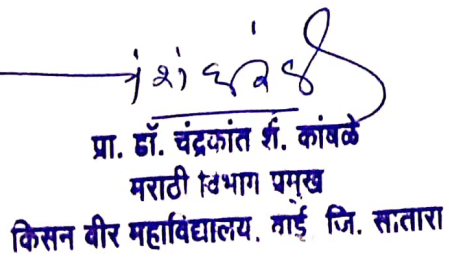 प्रा. डॉ. चंद्रकांत शं. कांबळे
मराठी विभाग प्रमुख
किसन वीर महाविद्यालय, वाई जि. सातारा